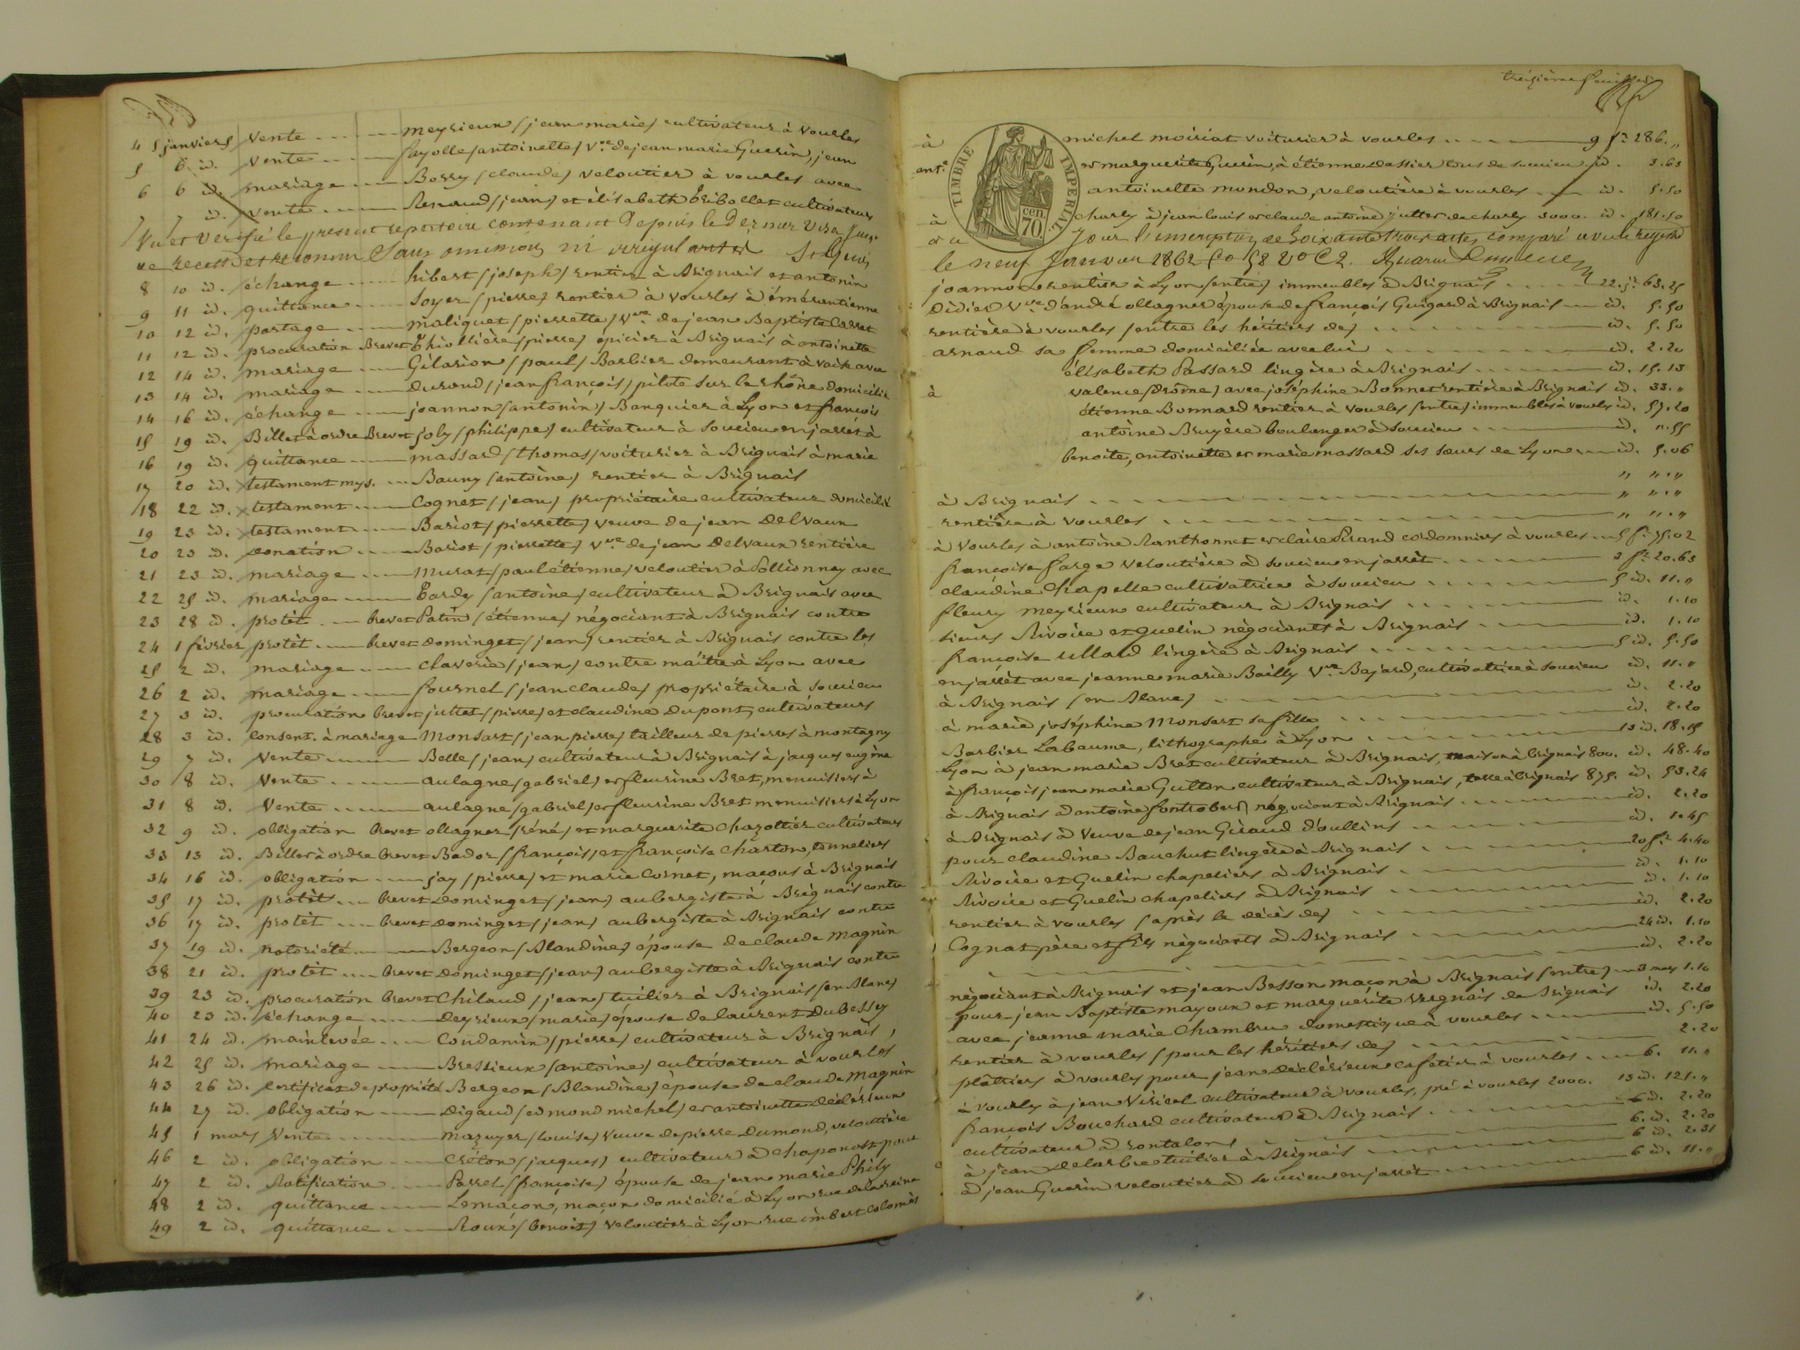 4 5 janvier vente meyrieux (jean marie) cultivateur à vourles
5 6 id. vente fayolle (antoinette) Vve de jean marie Guerin, jean
6 6 id. mariage Bossy (claude) veloutier à vourles avec
7 7 id. vente Renaud (jean) et élisabeth Gribollet cultivateurs
Vu et vérifié le présent répertoire contenant depuis le Dernier Visa
Sans omission ni irrégularité St Genis
8 10 id. échange hibert (joseph) rentier à Brignais et antonin
9 11 id. quittance Soyer (pierre) rentier à vourles à émérentienne
10 12 id. partage maliquet (pierrette) Vve de jean Baptiste
11 12 id. procuration Brevet Thiollière (pierre) épicier à Brignais à antoinette
12 14 id. mariage Gilarion (paul) Barbier demeurant à vaise avec
13 14 id. mariage durand (jean françois) pilote sur le rhône domicilié
14 16 id. échange joannon (antonin) Banquier à Lyon et françois
15 19 id. Billet à ordre Brevet joly (philippe) cultivateur à Soucieu en jarret à
16 19 id. quittance massard (thomas) voiturier à Brignais à marie
17 20 id. testament mys. Bauny (antoine) rentier à Brignais
18 22 id. testament Cognet (jean) propriétaire cultivateur domicilié
19 23 id. testament Bariot (pierrette) veuve de jean Delvaux
20 23 id. donation Bariot (pierrette) Vve de jean Delvaux rentière
21 23 id. mariage Murat (paul étienne) veloutier à Pollionnay avec
22 25 id. mariage Tardy (antoine) cultivateur à Brignais avec
23 28 id. protêt brevet Patin (étienne) négociant à Brignais contre
24 1 février protêt brevet dominget (jean) rentier à Brignais contre les
25 2 id. mariage Claverie (jean) contre maître à Lyon avec
26 2 id. mariage fournel (jean claude) propriétaire à Soucieu
27 3 id. procuration brevet juttet (pierre) et claudine dupont, cultivateurs
28 3 id. Consent. à mariage Monsart (jean pierre) tailleur de pierres à montagny
29 7 id. vente Belle (jean) cultivateur à Brignais à jacques eugène
30 8 id. vente aulagne (gabriel) et fleurine Bret, menuisiers à
31 8 id. vente aulagne (gabriel) et fleurine Bret menuisiers à Lyon
32 9 id. obligation brevet ollagner (réné) et marguerite Chazottier cultivateurs
33 13 id. Billet à ordre brevet Bador (françois) et françoise Charton, tonneliers
34 16 id. obligation fay (pierre) et marie Cornet, maçons à Brignais
35 17 id. protêt brevet dominget (jean) aubergiste à Brignais contre
36 17 id. protêt brevet dominget (jean) aubergiste à Brignais contre
37 19 id. notoriété Bergeon (Blandine) épouse de claude Magnin
38 21 id. protêt brevet dominget (jean) aubergiste à Brignais contre
39 23 id. procuration brevet Chilaud (jean) tuilier à Brignais (en Blanc)
40 23 id. échange deyrieux (marie) épouse de laurent dubessy
41 24 id. mainlevée Condamin (pierre) cultivateur à Brignais,
42 25 id. mariage Bressieux (antoine) cultivateur à vourles
43 26 id. Certificat de propriété Bergeon (Blandine) épouse de claude Magnin
44 27 id. obligation digaud (edmond michel) et antoinette declérieux
45 1 mars vente mazuyer (louise) veuve de pierre dumond, veloutière
46 2 id. obligation Créton (jacques) cultivateur à chaponost pour
47 2 id. Notification Perrel (françoise) épouse de jean marie Phily
48 2 id. quittance Lemaçon, maçon domicilié à Lyon rue de la reine
49 2 id. quittance Roux (benoit) veloutier à Lyon rue imbert colomès
treizième feuillet
TIMBRE IMPERIAL
70 cen.
à michel moiriat voiturier à vourles 9 fr 286. "
ante et marguerite Guerin, à étienne dassier tous de Soucieu id. 3.63
antoinette mondon, veloutière à vourles id. 5.50
à charly à jean louis et claude antoine jutter de charly 3000. id. 181.50
Jour l'inscription de Soixante trois actes comparé avec le registre
le neuf Janvier 1862
joannon rentier à Lyon (entre) immeubles à Brignais 22. fr. 63.25
didier Vve d'andré ollagner épouse de françois Guigard à Brignais id. 5.50
rentière à vourles (entre les héritiers de) id. 5.50
arnaud sa femme domiciliée avec lui id. 2.20
élisabeth Passard lingère à Brignais id. 15.13
à valence (Drôme) avec joséphine Bonnet rentière à Brignais id. 33. "
étienne Bonnard rentier à vourles (entre) immeubles à vourles id. 57.20
antoine Bruyère boulanger à Soucieu id. ".55
benoite, antoinette et marie massard ses sœurs de Lyon id. 5.06
" "."
à Brignais " "."
rentière à vourles " "."
à vourles à antoine Ranthonnet et claire Pirand cordonniers à vourles 5 fr. 75.02
françoise farge veloutière à soucieu en jarrêt 3 fr. 20.63
claudine Chapelle cultivatrice à Soucieu 5 id. 11. "
fleury meyrieux cultivateur à Brignais id. 1.10
sieurs Rivoire et Guelin négociants à Brignais id. 1.10
françoise ullard lingère à Brignais 5 id. 5.50
en jarrêt avec jeanne marie Bailly Vve Bajard, cultivatrice à Soucieu id. 11. "
à Brignais (en Blanc) id. 2.20
à marie joséphine Monsart sa fille id. 2.20
Barbier Labaume, lithographe à Lyon 13 id. 18.15
Lyon à jean marie Bret cultivateur à Brignais, maison à Brignais 800. id. 48.40
à françois jean marie Gutton cultivateur à Brignais, terre à Brignais 875. id. 53.24
à Brignais à antoine fontrobert négociant à Brignais id. 2.20
à Brignais à Veuve de jean Giraud d'oullins id. 1.45
pour claudine Bauchut lingère à Brignais 20 fr. 4.40
Rivoire et Guelin chapeliers à Brignais id. 1.10
Rivoire et Guelin chapeliers à Brignais id. 1.10
rentier à vourles (après le décès de) id. 2.20
Cognat père et fils négociants à Brignais 24 id. 1.10
id. 2.20
négociant à Brignais et jean Besson maçon à Brignais (entre) 3 mars 1.10
pour jean Baptiste mayoux et marguerite vergnais de Brignais id. 2.20
avec jeanne marie Chambru domestique à vourles id. 5.50
rentier à vourles (pour les héritiers de) 2.20
plâtriers à vourles pour jean declérieux cafetier à vourles 6. 11. "
à vourles à jean Viricel cultivateur à vourles, pré à vourles 2000. 13 id. 121. "
françois Bouchard cultivateur à Brignais 6 id. 2.20
cultivateur à rontalon 6. id. 2.20
à jean delarbre tuilier à Brignais 6 id. 2.31
à jean Guerin veloutier à Soucieu en jarrêt 6 id. 11. "